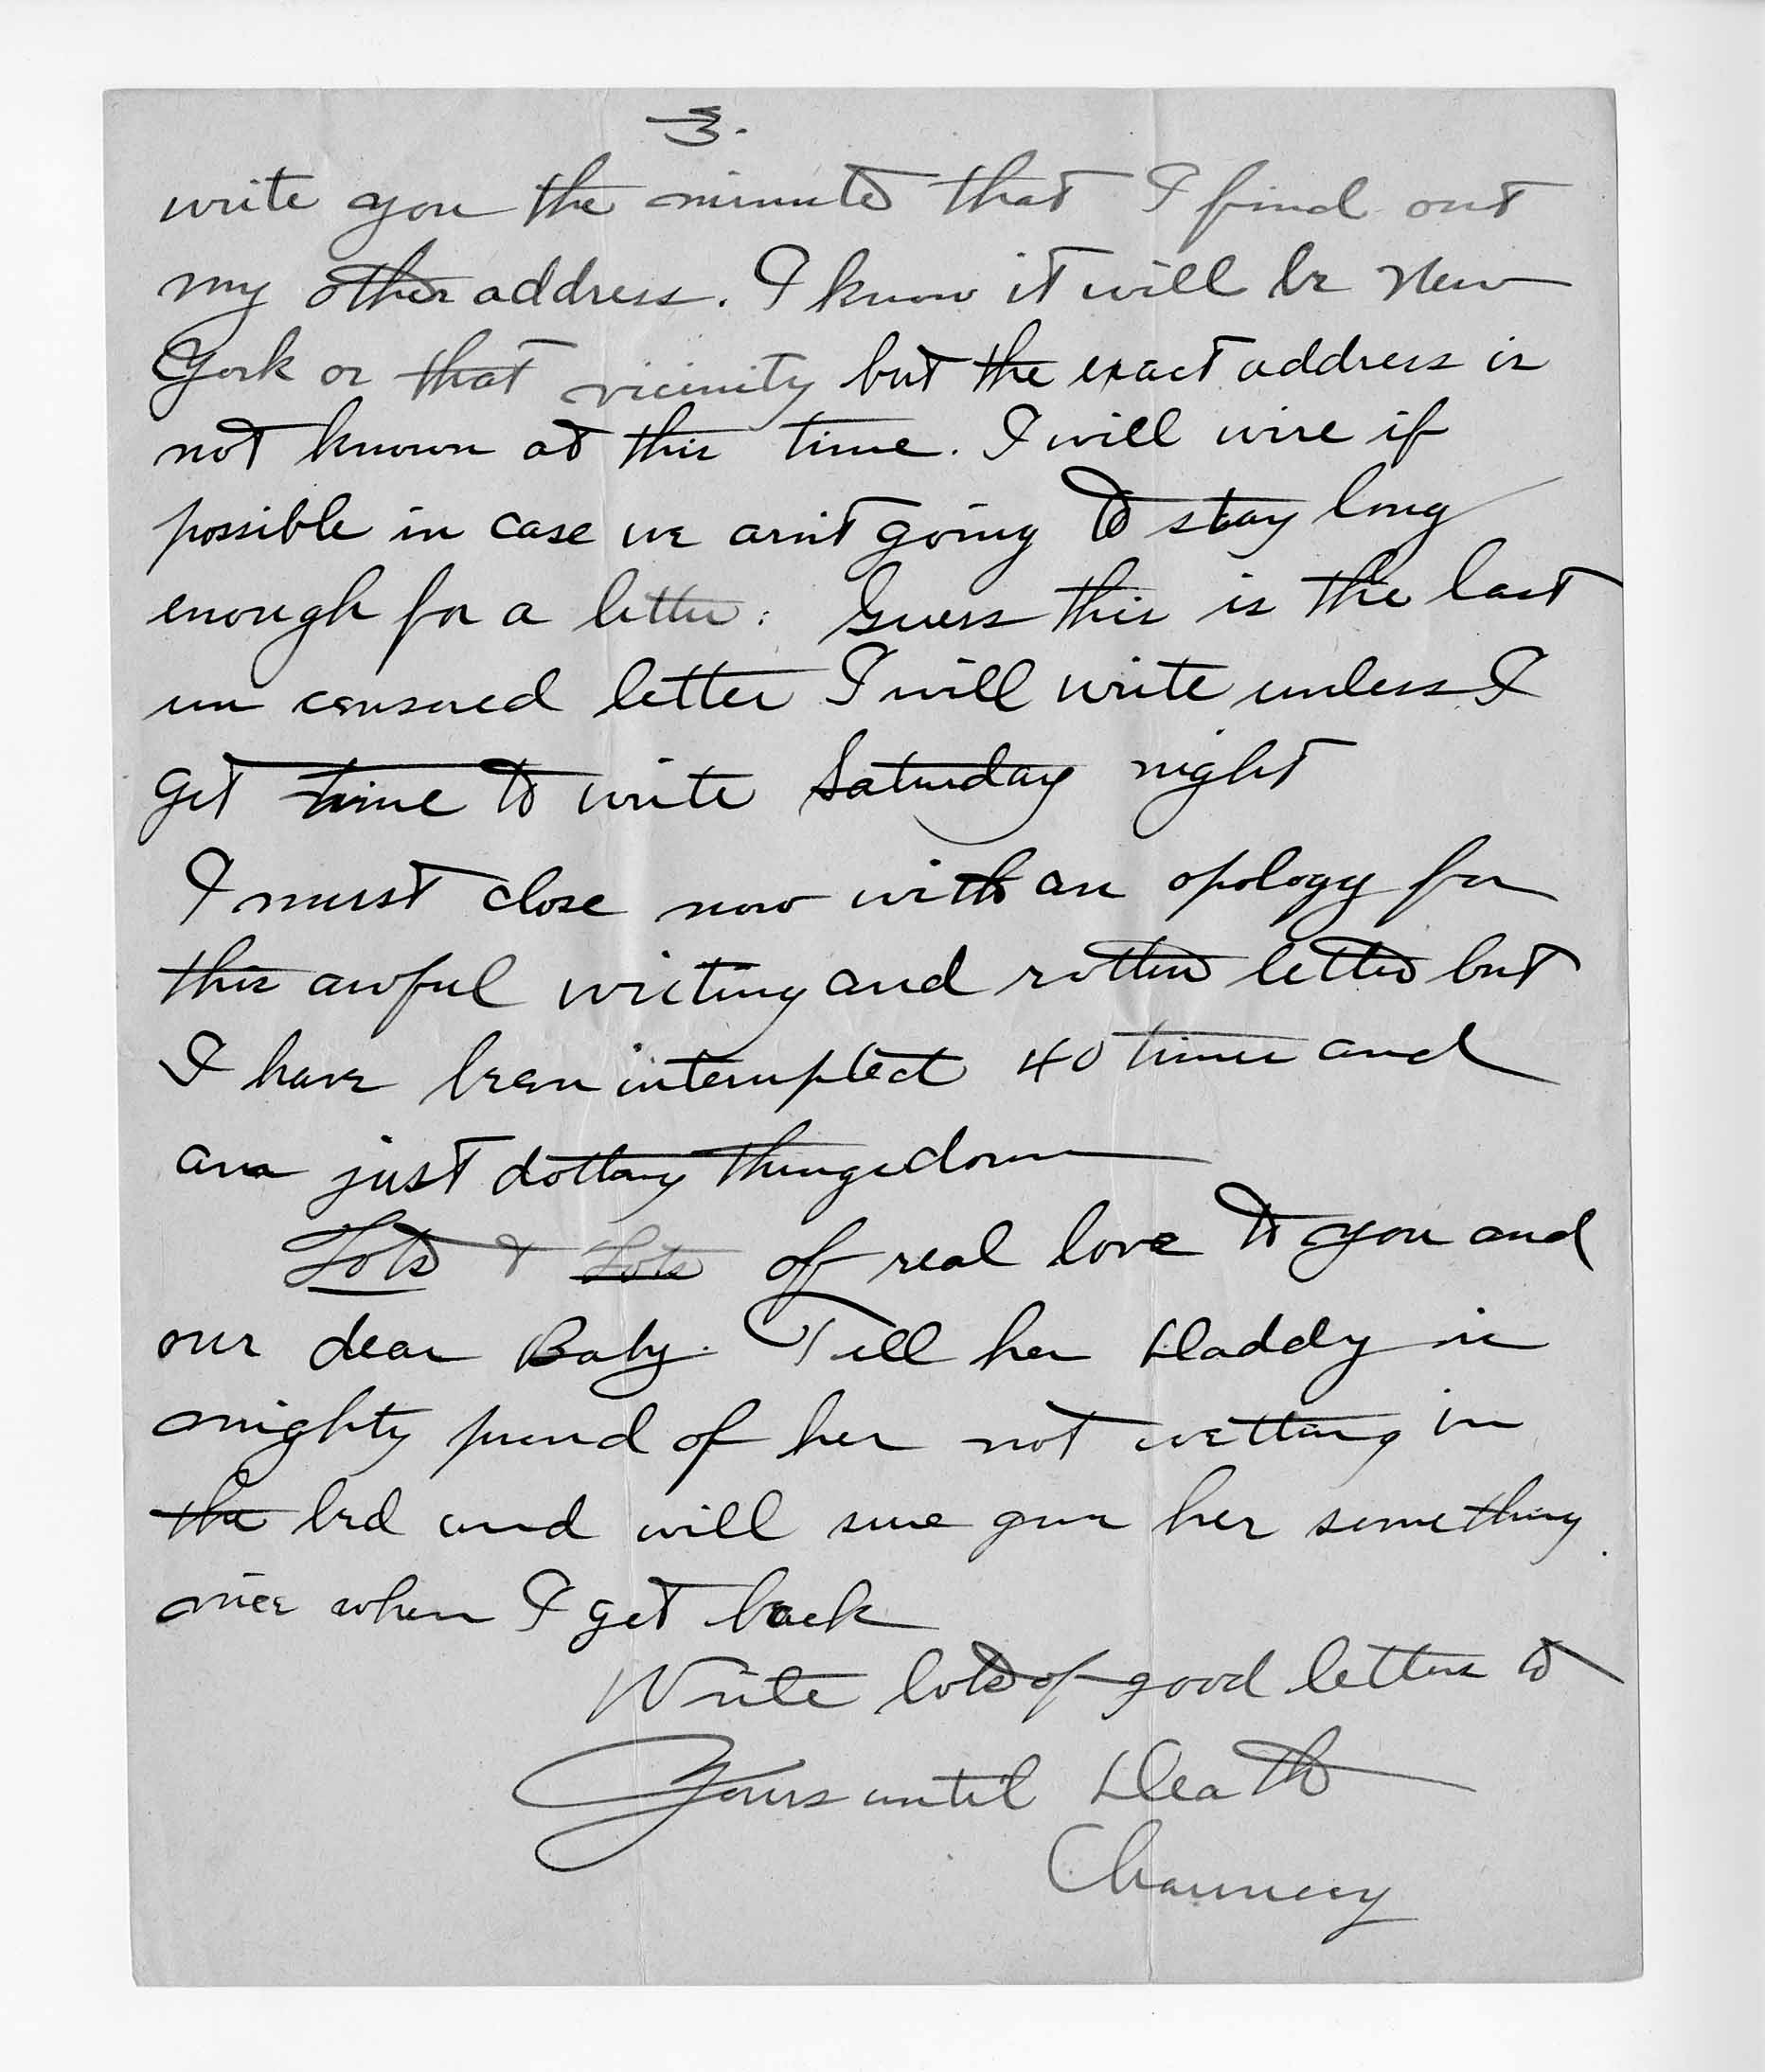 3.
write you the minute that I find out
my other address. I know it will be New
York or that vicinity but the exact address is
not known at this time. I will wire if
possible in case we arn't going to stay long
enough for a letter: Guess this is the last
un censured letter I will write unless I
get time to write Saturday night
I must close now with an opology for
this awful writing and rotten letter but
I have been interrupted 40 times and
am just dotting things down
Lots & Lots of real love to you and
our dear Baby. Tell her Daddy is
mighty proud of her not wetting in
the bed and will sure give her something
nice when I get back
Write lots of good letters to
Yours until Death
Chauncey